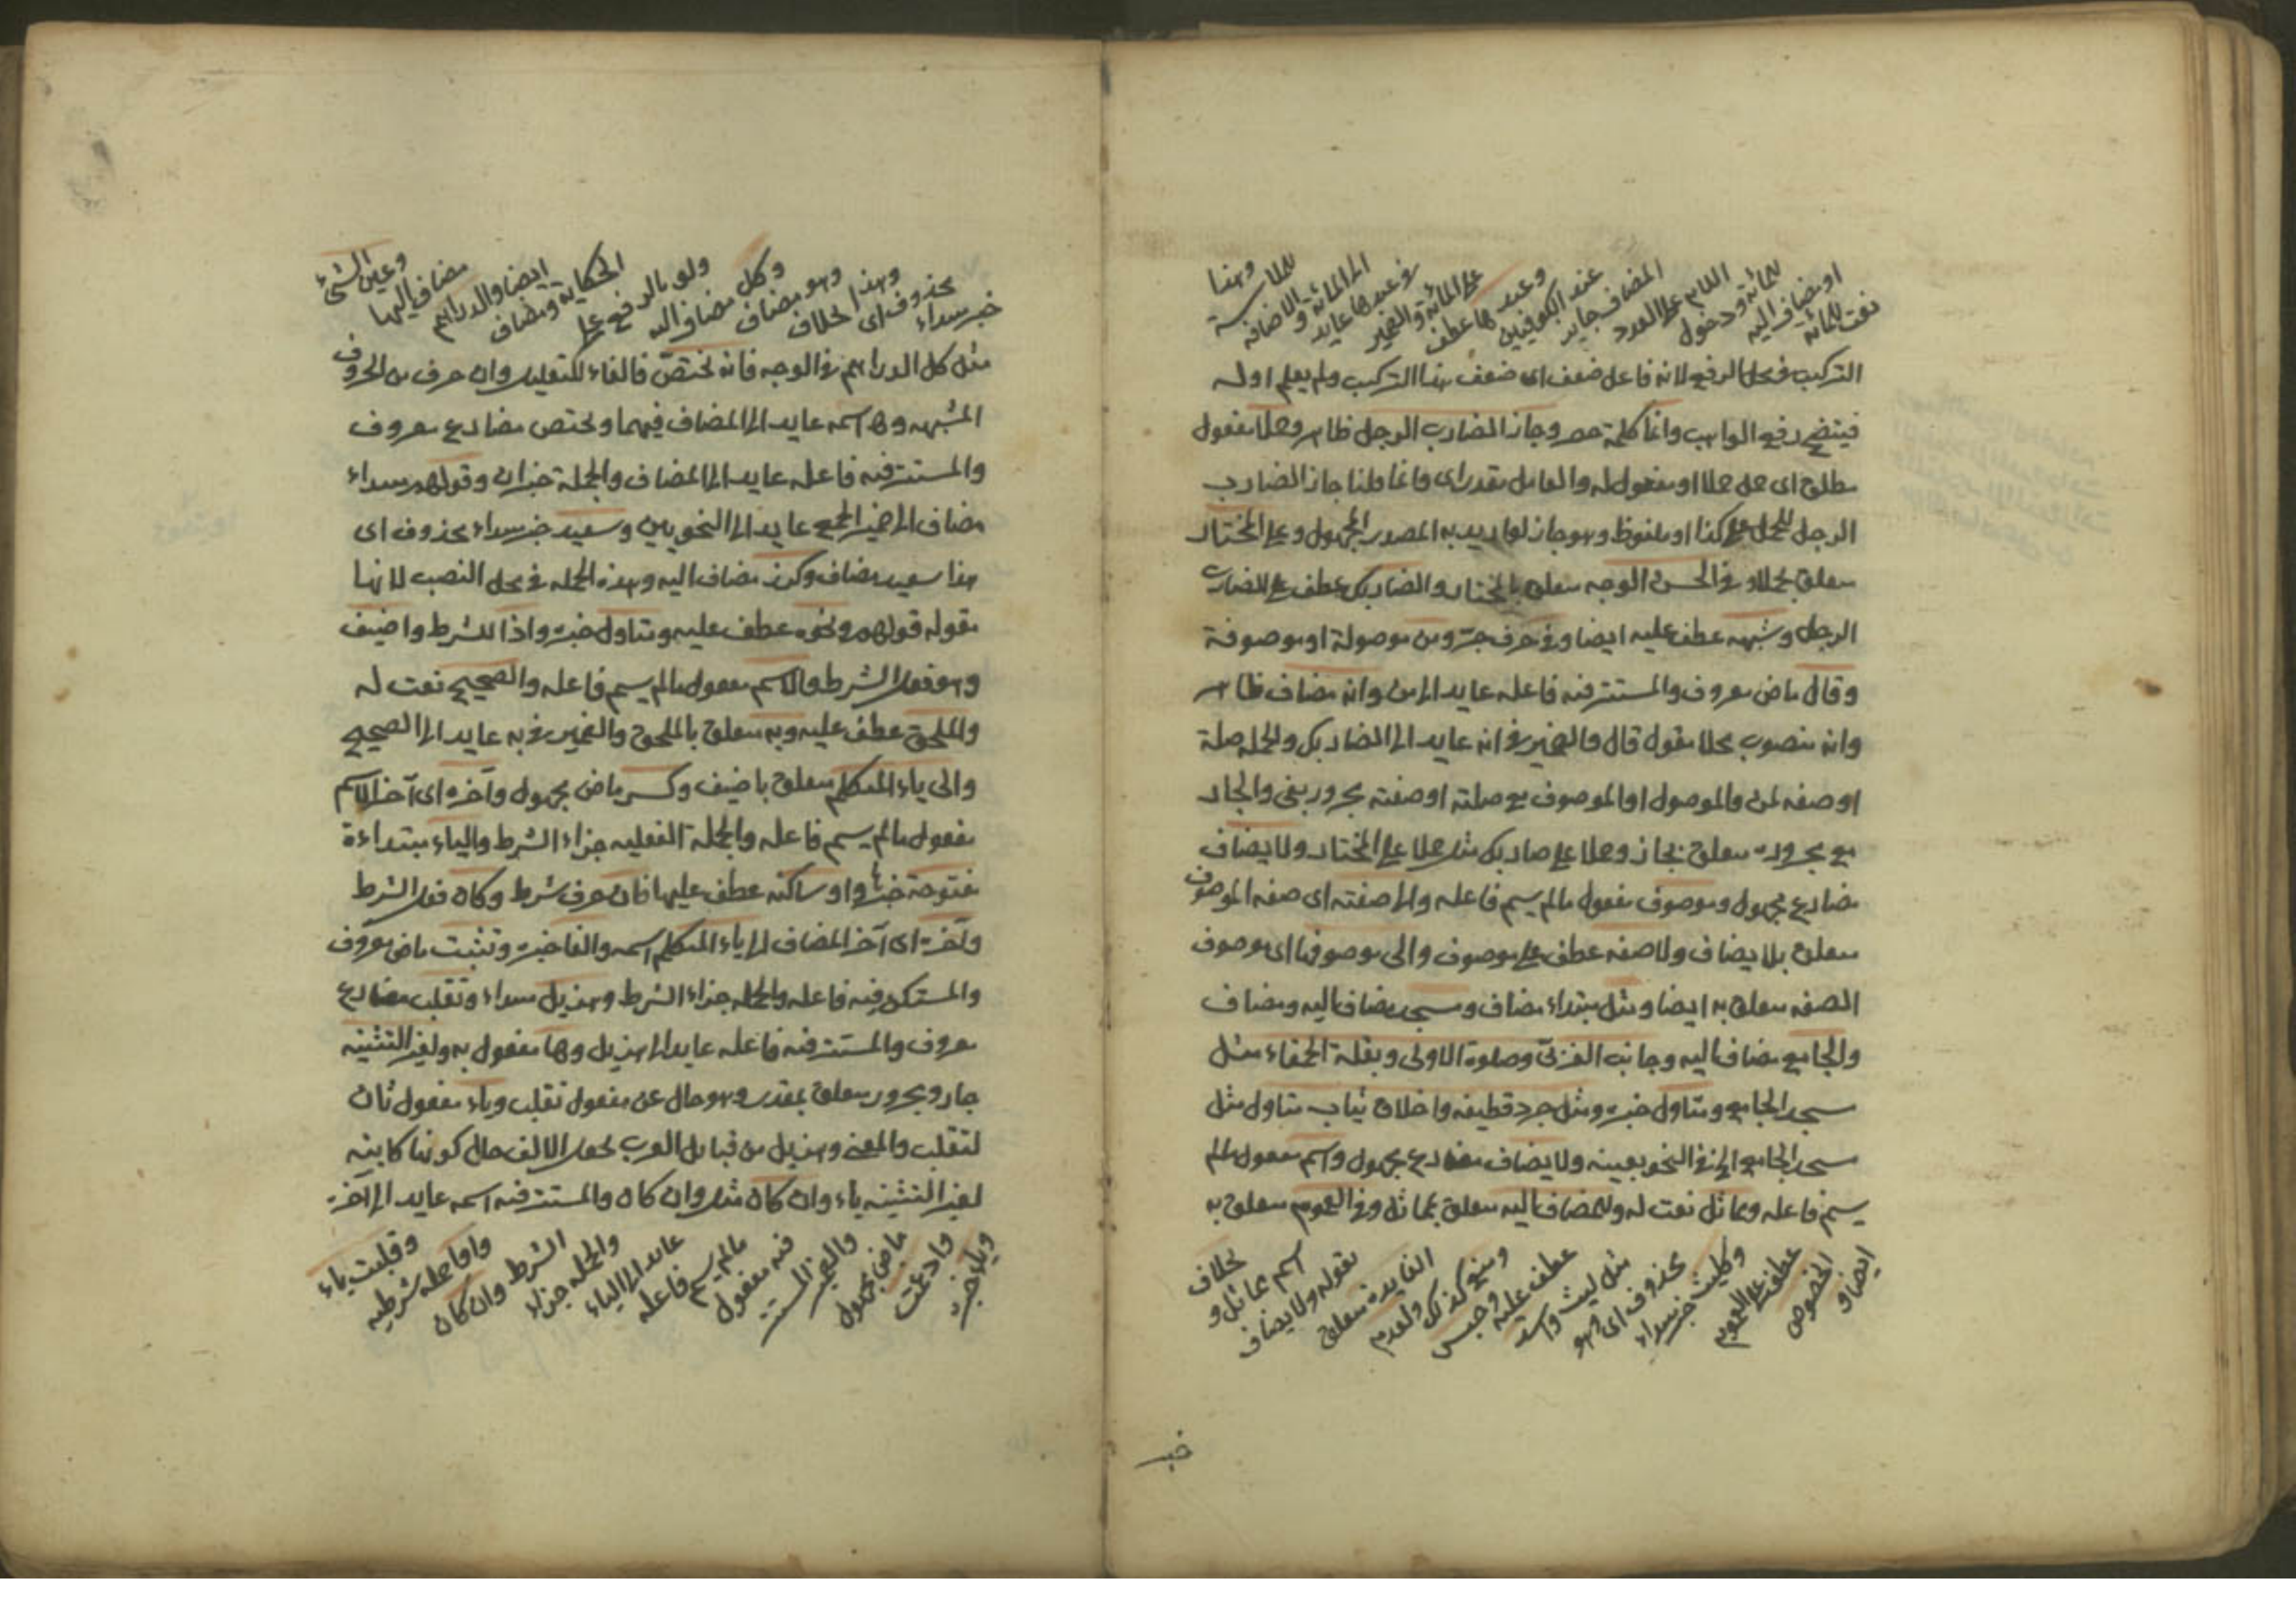 نعت للمائة
او مضاف اليه
للمائة ودخول
اللام على العدد
المضاف جايز
عند الكوفيين
وعبدها عطف
على المائة والضمير
في عبدها عايد
الى المائة والاضافة
وهذا
التركيب في محل الرفع لانه فاعل ضعف اى ضعف هذا التركيب ولم يعلم اوله
فيتضح رفع الواهب وانما كلمة حصر وجاز الضارب الرجل ظاهر وحملا مفعول
مطلق اى حمل حملا او مفعول له والعامل مقدر اى وانما قلنا جاز الضارب
الرجل للحمل على كذا او ملفوظ وهو جاز لو اريد به المصدر المجهول وعلى المختار
متعلق بحملا وفي الحسن الوجه متعلق بالمختار والضاربك عطف على الضارب
الرجل وشبهه عطف عليه ايضا وفي حرف جر ومن موصولة او موصوفة
وقال ماض معروف والمستتر فيه فاعله عايد الى من وانه مضاف ظاهر
وانه منصوب محلا مقول قال والضمير في انه عايد الى الضاربك والجملة صلة
او صفة لمن والموصول او الموصوف مع صلته او صفته مجرور بفي والجار
مع مجروره متعلق بجاز وحملا على ضاربك مثل حملا على المختار ولا يضاف
مضارع مجهول وموصوف مفعول مالم يسم فاعله والى صفته اى صفة الموصوف
متعلق بلا يضاف ولا صفة عطف على موصوف والى موصوفها اى موصوف
الصفة متعلق به ايضا ومثل مبتداء مضاف ومسجد مضاف اليه ومضاف
والجامع مضاف اليه وجانب الغربى وصلوة الاولى وبقلة الحمقاء مثل
مسجد الجامع ومتاول خبره ومثل جرد قطيفة واخلاق ثياب متاول مثل
مسجد الجامع الخ في النحو بعينه ولا يضاف مضارع مجهول واسم مفعول مالم
يسم فاعله ومماثل نعت له وللمضاف اليه متعلق بمماثل وفي العموم متعلق به
ايضا و
الخصوص
عطف على العموم
وكليث خبر مبتداء
محذوف اى وهو
مثل ليث واسد
عطف عليه وحبس
ومنع كذلك ولعدم
الفايدة متعلق
بقوله ولا يضاف
اسم مماثل و
بخلاف
خبر
خبر مبتداء
محذوف اى
وهذا الخلاف
وهو مضاف
وكل مضاف اليه
ولو بالرفع على
الحكاية ومضاف
ايضا والدراهم
مضاف اليها
وعين الشئ
مثل كل الدراهم في الوجه فانه يختص فالفاء للتعليل وان حرف من الحروف
المشبهه وها اسمه عايد الى المضاف فيهما ويختص مضارع معروف
والمستتر فيه فاعله عايد الى المضاف والجملة خبر ان وقولهم مبتداء
مضاف الى ضمير الجمع عايد الى النحويين وسعيد خبر مبتداء محذوف اى
هذا سعيد مضاف وكرز مضاف اليه وهذه الجملة في محل النصب لانها
مقوله قولهم ونحوه عطف عليه ومتاول خبره واذا للشرط واضيف
وهو فعل الشرط والاسم مفعول مالم يسم فاعله والصحيح نعت له
والملحق عطف عليه وبه متعلق بالملحق والضمير في به عايد الى الصحيح
والى ياء المتكلم متعلق باضيف وكسر ماض مجهول وآخره اى آخر الاسم
مفعول مالم يسم فاعله والجملة الفعليه جزاء الشرط والياء مبتداءة
مفتوحة خبرها او ساكنه عطف عليها فان حرف شرط وكان فعل الشرط
وآخره اى آخر المضاف الى ياء المتكلم اسمه والفا خبره وتثبت ماض معروف
والمستكن فيه فاعله والجملة جزاء الشرط وهذيل مبتداء وتقلب مضارع
معروف والمستتر فيه فاعله عايد الى هذيل وها مفعول به ولغير التثنيه
جار ومجرور متعلق بمقدر وهو حال عن مفعول تقلب وياء مفعول ثان
لتقلب والمعنى وهذيل من قبايل العرب تجعل الالف حال كونها كاينه
لغير التثنيه ياء وان كان مثل وان كان والمستتر فيه اسمه عايد الى آخره
وياء خبره
وادغمت
ماض مجهول
والضمير المستتر
فيه مفعول
مالم يسم فاعله
عايد الى الياء
والجملة جزاء
الشرط وان كان
واوا جملة شرطيه
وقلبت ياء